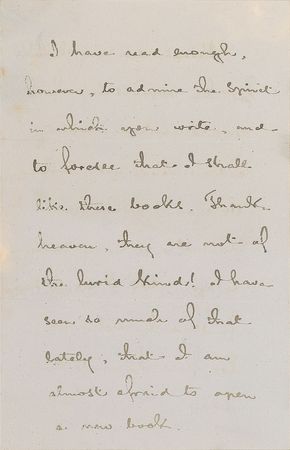 I have read enough,
however, to admire the spirit
in which you write, and
to foresee that I shall
like these books. Thank
heaven, they are not of
the lurid kind! I have
seen so much of that
lately, that I am
almost afraid to open
a new book.